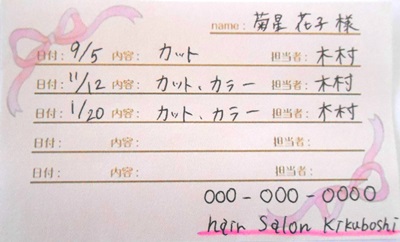 name: 菊星 花子 様
日付: 9/5 内容: カット 担当者: 木村
日付: 11/12 内容: カット、カラー 担当者: 木村
日付: 1/20 内容: カット、カラー 担当者: 木村
日付: 内容: 担当者:
日付: 内容: 担当者:
000-000-0000
hair Salon Kikuboshi